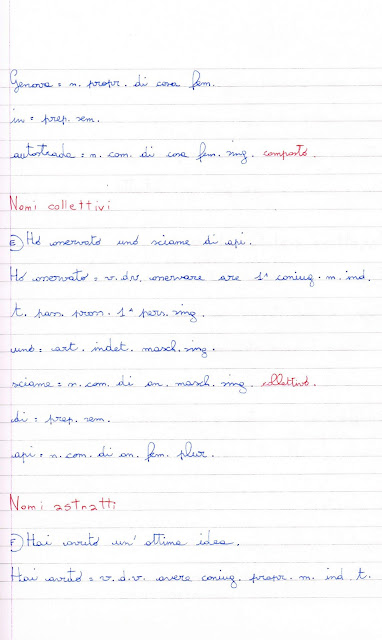 Genova = n. propr. di cosa fem.
in = prep. sem.
autostrada = n. com. di cosa fem. sing. composto.
Nomi collettivi
E) Ho osservato uno sciame di api.
Ho osservato = v. d.v. osservare are 1ª coniug. m. ind.
t. pass. pross. 1ª pers. sing.
uno = art. indet. masch. sing.
sciame = n. com. di an. masch. sing. collettivo.
di = prep. sem.
api = n. com. di an. fem. plur.
Nomi astratti
F) Hai avuto un' ottima idea.
Hai avuto = v. d.v. avere coniug. propr. m. ind. t.